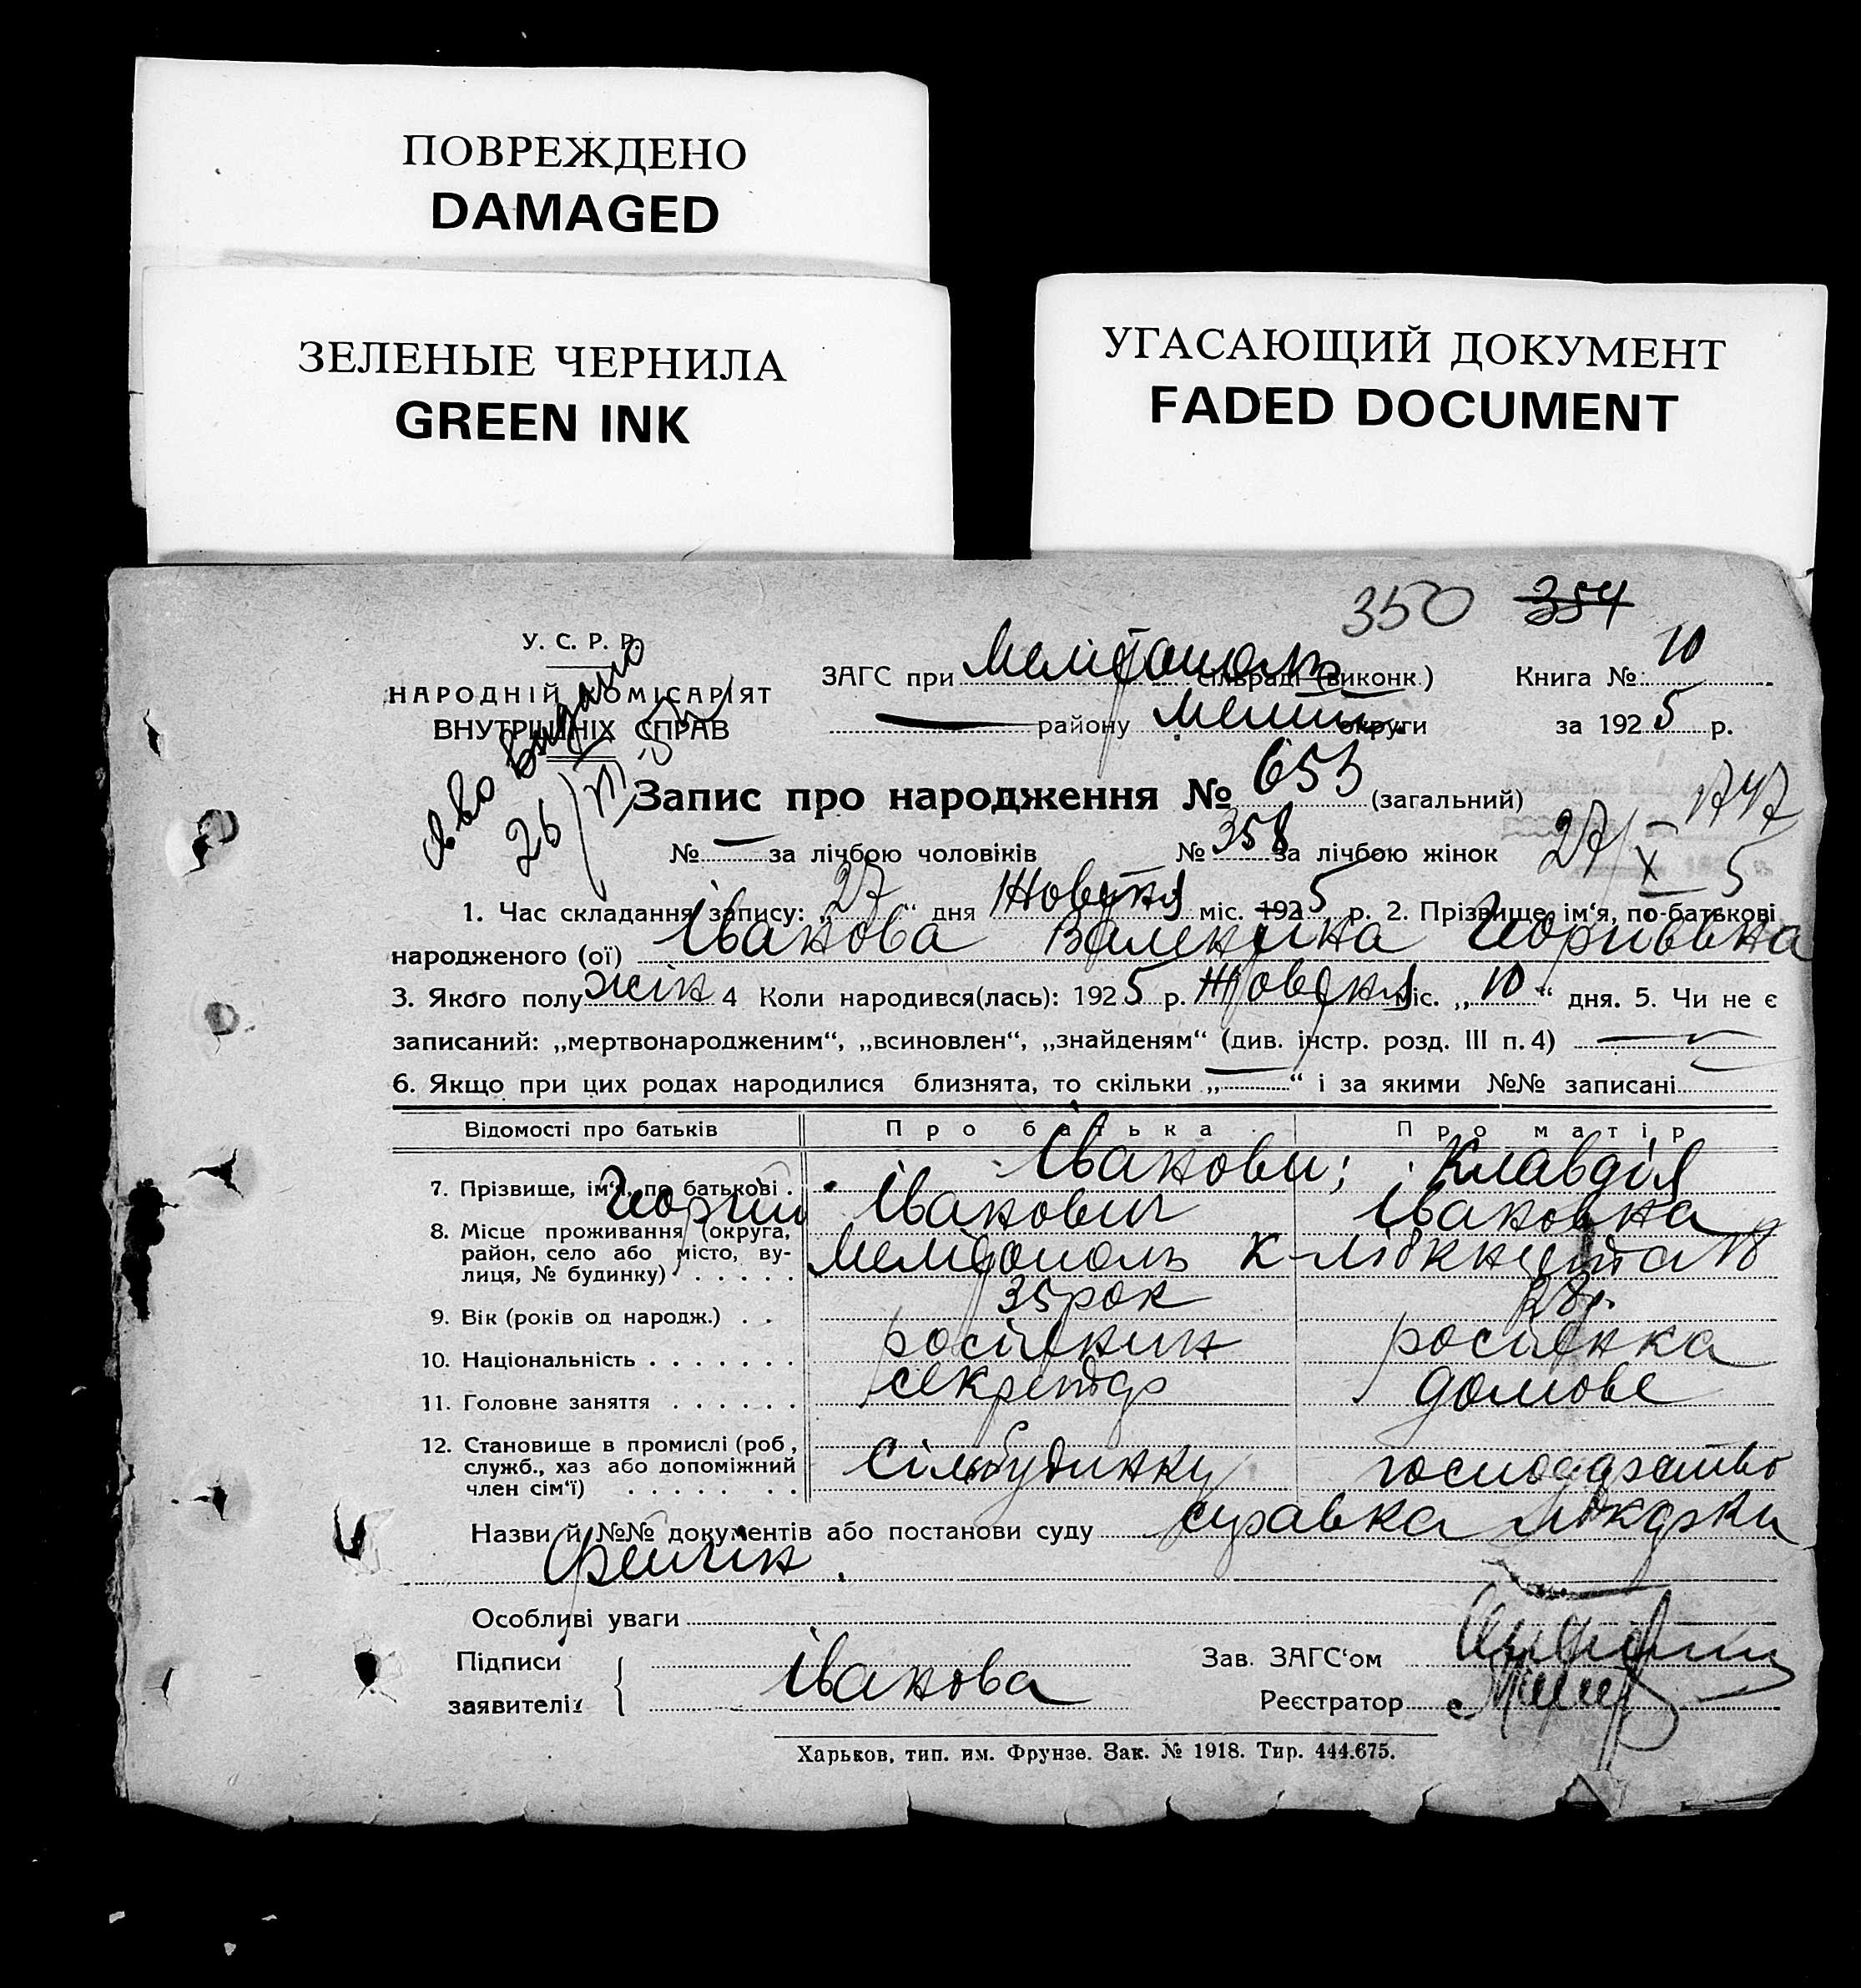 ПОВРЕЖДЕНО
DAMAGED
ЗЕЛЕНЫЕ ЧЕРНИЛА
GREEN INK
УГАСАЮЩИЙ ДОКУМЕНТ
FADED DOCUMENT
350 354
У. С. Р. Р.
НАРОДНІЙ КОМІСАРІЯТ
ВНУТРІШНІХ СПРАВ
ЗАГС при Мелітополь сільраді (виконк.) Книга № 10
— району Меліт. округи за 1925 р.
видано
26/VI
Запис про народження № 653 (загальний)
№ — за лічбою чоловіків № 358 за лічбою жінок
27/X 5
1. Час складання запису: „27“ дня Жовтня міс. 1925 р. 2. Прізвище, ім‘я, по-батькові
народженого (ої) Іванова Валентина Георгіївна
3. Якого полу жін 4 Коли народився(лась): 1925 р. Жовтня міс. „10“ дня. 5. Чи не є
записаний: „мертвонародженим“, „всиновлен“, „знайденям“ (див. інстр. розд. III п. 4) —
6. Якщо при цих родах народилися близнята, то скільки „—“ і за якими №№ записані
Відомості про батьків Про батька Про матір
7. Прізвище, ім‘я, по батькові . Іванови; Клавдія
Георгій Іванович Івановна
8. Місце проживання (округа,
район, село або місто, вулиця, № будинку) Мелітополь К-Лібкнехта 18
9. Вік (років од народж.) . . 35 рок 28 р.
10. Національність . . . . . . . росіянин росіянка
11. Головне заняття . . . . . . секретар домове
12. Становище в промислі (роб,
служб., хаз або допоміжний
член сім‘ї) . . . . . . . Сільбудинку господарство
Назви й №№ документів або постанови суду справка лікарки
Особливі уваги
Підписи
заявителів { Іванова
Зав. ЗАГС‘ом
Реєстратор
Харьков, тип. им. Фрунзе. Зак. № 1918. Тир. 444.675.